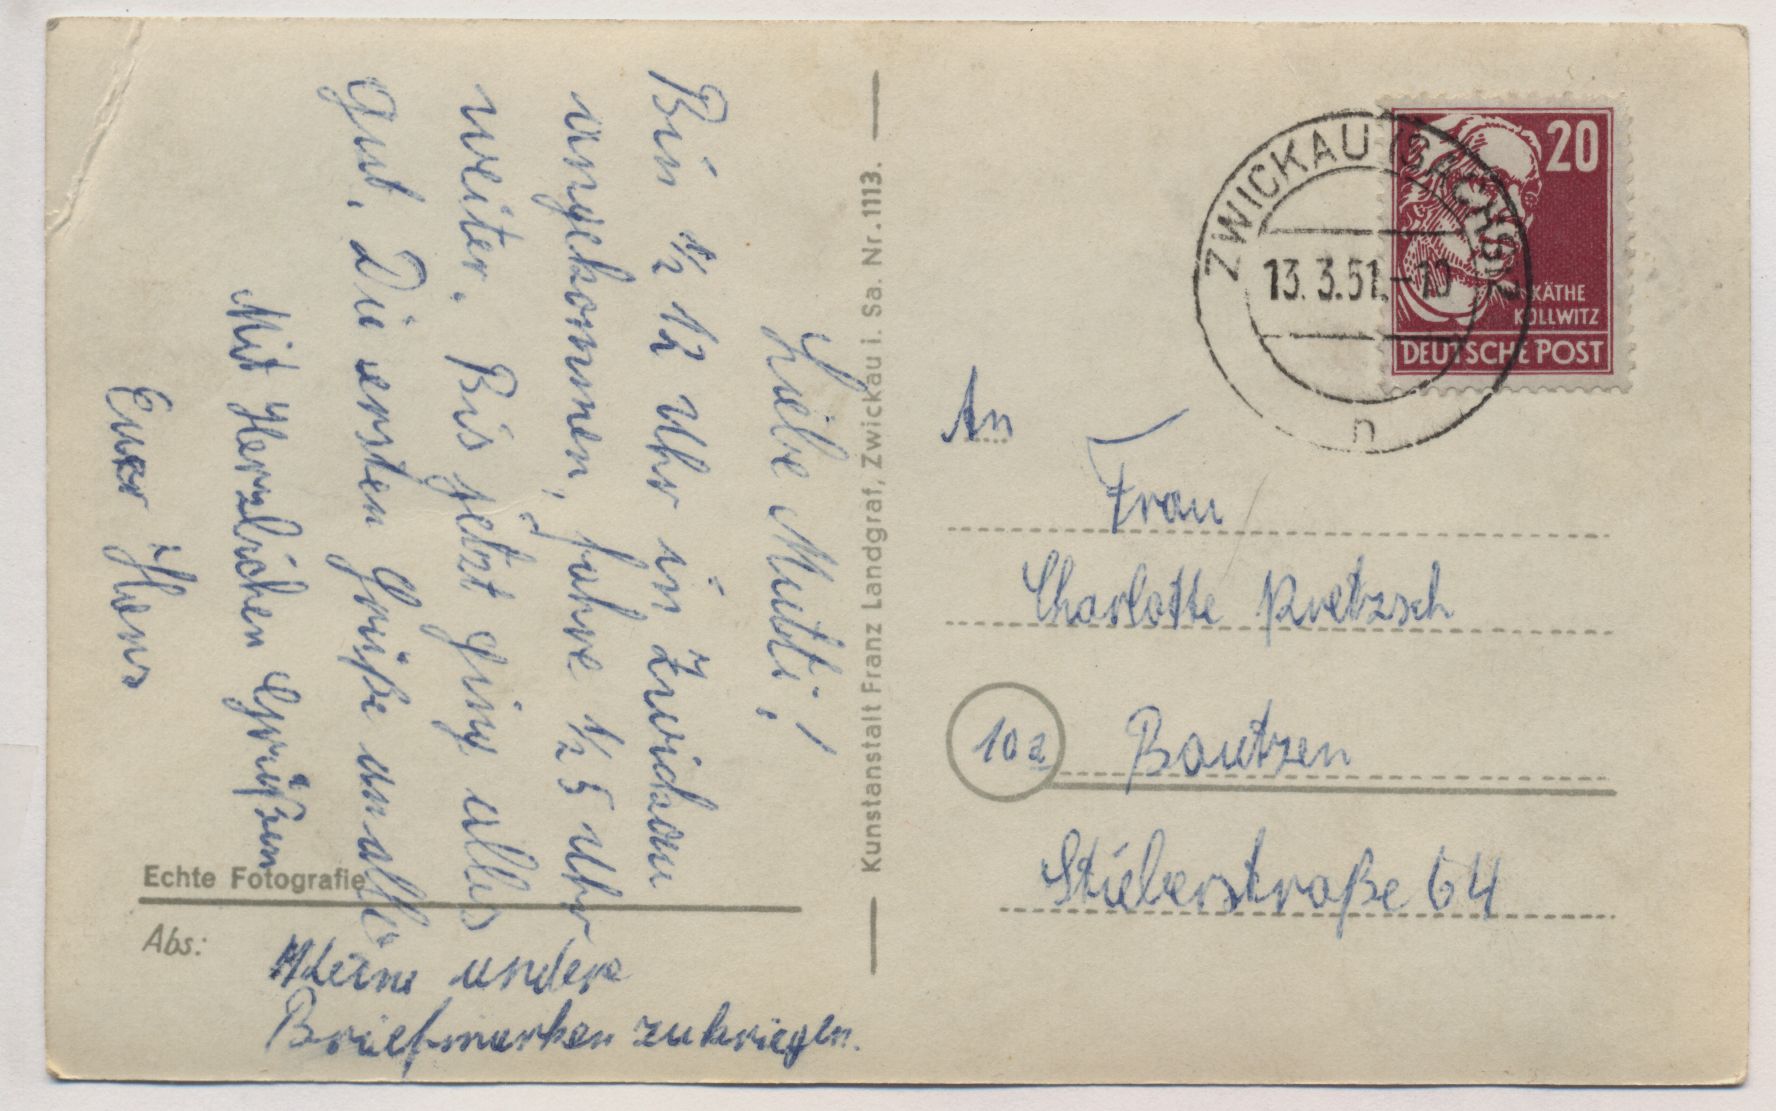 Liebe Mutti!
Bin ½ 12 Uhr in Zwickau
angekommen, fahre ½ 5 Uhr
weiter. Bis jetzt ging alles
gut. Die ersten Grüße an alle
Mit Herzlichen Grüßen
Euer Hans
Echte Fotografie
Abs:
Keine andere
Briefmarken zu kriegen.
Kunstanstalt Franz Landgraf, Zwickau i. Sa. Nr. 1113.
ZWICKAU (SACHS) 2
13.3.51.-10
n
20
KÄTHE
KOLLWITZ
DEUTSCHE POST
An
Frau
Charlotte Pretzsch
10a Bautzen
Stieberstraße 64